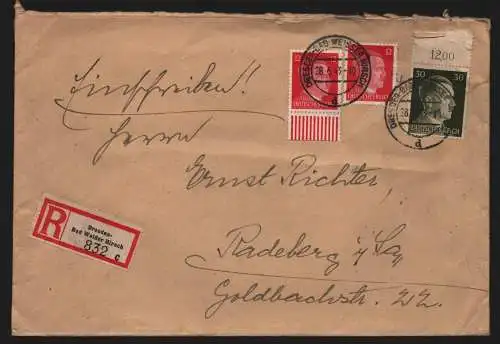 Einschreiben!
Herrn
Ernst Richter
Radeberg i/Sa
Goldbachstr. 22.
R
Dresden-
Bad Weißer Hirsch
832 c
12 12
DEUTSCHES REICH
DRESDEN-BAD WEISSER HIRSCH
d
12,00
30 30
DEUTSCHES REICH
d